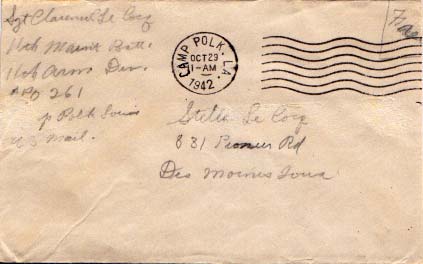 Sgt Clarence Le Cocq
11th Maint Batt.
11th Arm. Div.
APO 261
p Polk Louis
U S Mail.
Free
CAMP POLK, LA.
OCT 29
1-AM
1942
Stella Le Cocq
831 Pioneer Rd
Des Moines Iowa